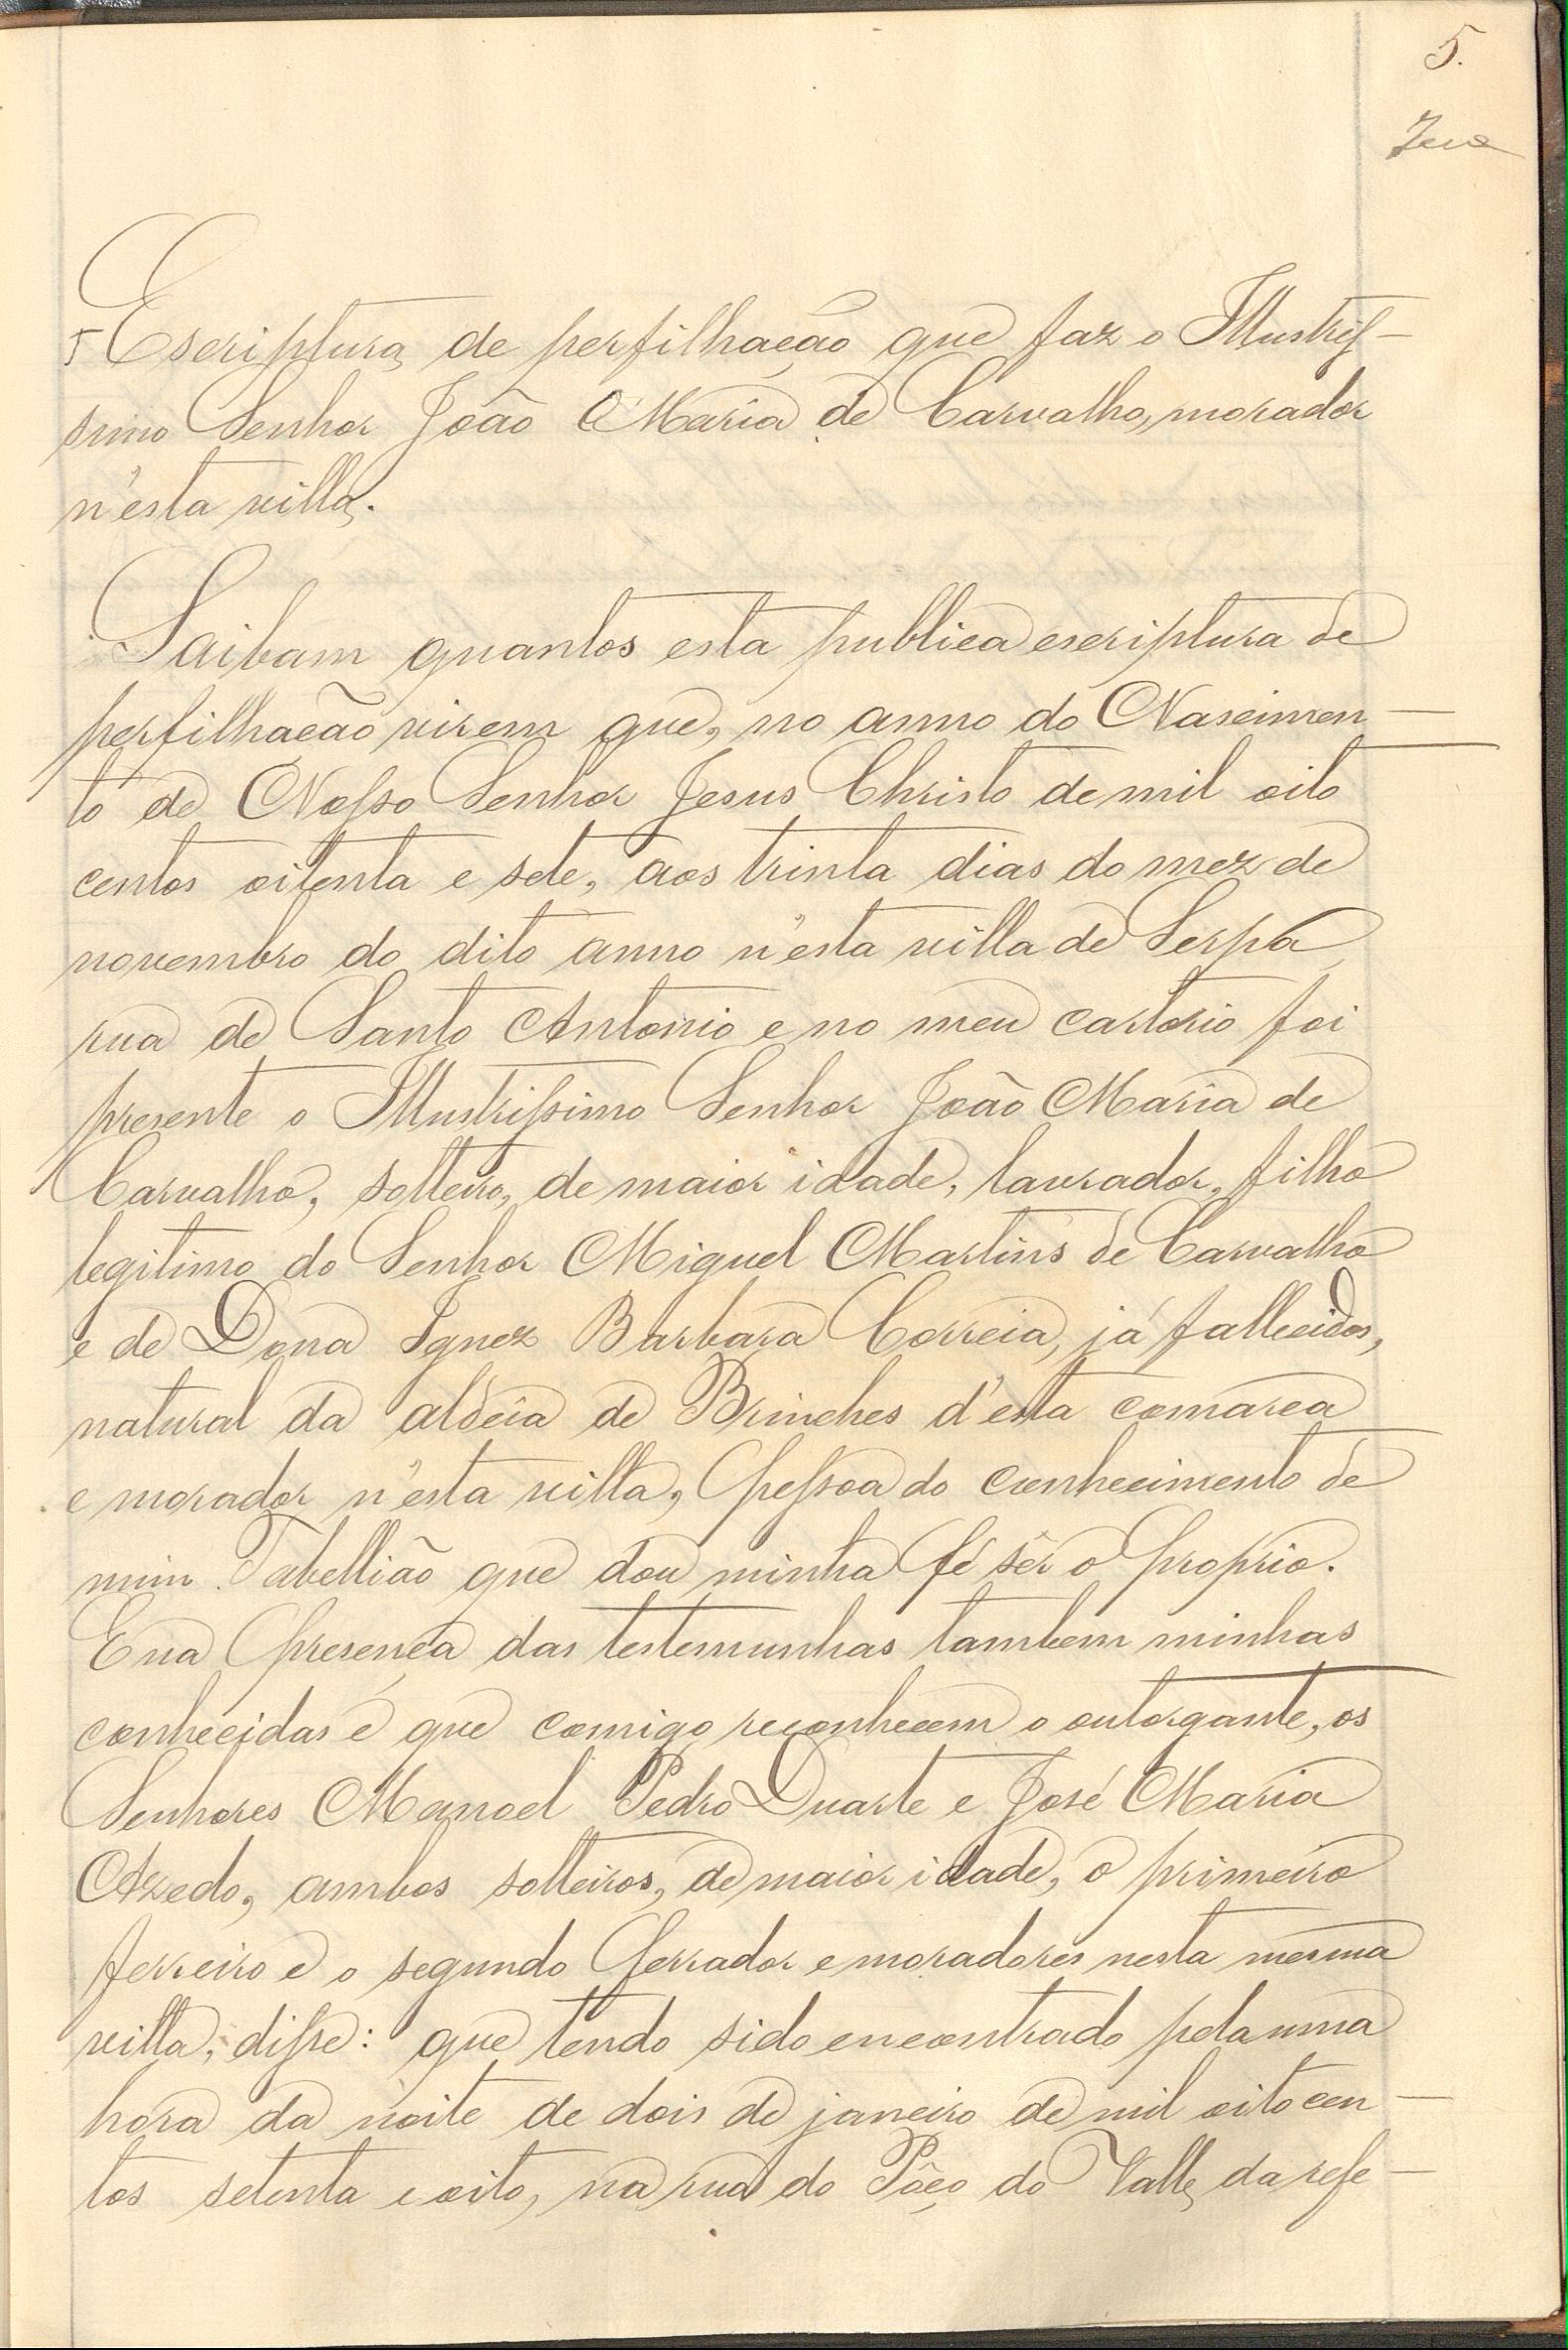 5.
Escriptura de perfilhação que faz o Illustris-
simo Senhor João Maria de Carvalho, morador
n'esta villa.
Saibam quantos esta publica escriptura de
perfilhação virem que, no anno do Nascimen-
to de Nosso Senhor Jesus Christo de mil oito
centos oitenta e sete, aos trinta dias do mez de
novembro do dito anno n'esta villa de Serpa,
rua de Santo Antonio e no meu cartorio foi
presente o Illustrissimo Senhor João Maria de
Carvalho, solteiro, de maior idade, lavrador, filho
legitimo do Senhor Miguel Martins de Carvalho
e de Dona Ignez Barbara Correia, já fallecidos,
natural da aldeia de Brinches d'esta comarca
e morador n'esta villa, pessoa do conhecimento de
mim Tabellião que dou minha fé sêr o proprio.
E na presença das testemunhas tambem minhas
conhecidas e que comigo reconhecem o outorgante, os
Senhores Manoel Pedro Duarte e José Maria
Azedo, ambos solteiros, de maior idade, o primeiro
ferreiro e o segundo ferrador e moradores nesta mesma
villa, disse: que tendo sido encontrado pela uma
hora da noite de dois de janeiro de mil oitocen-
tos setenta e oito, na rua do Pôço do Valle, da refe-